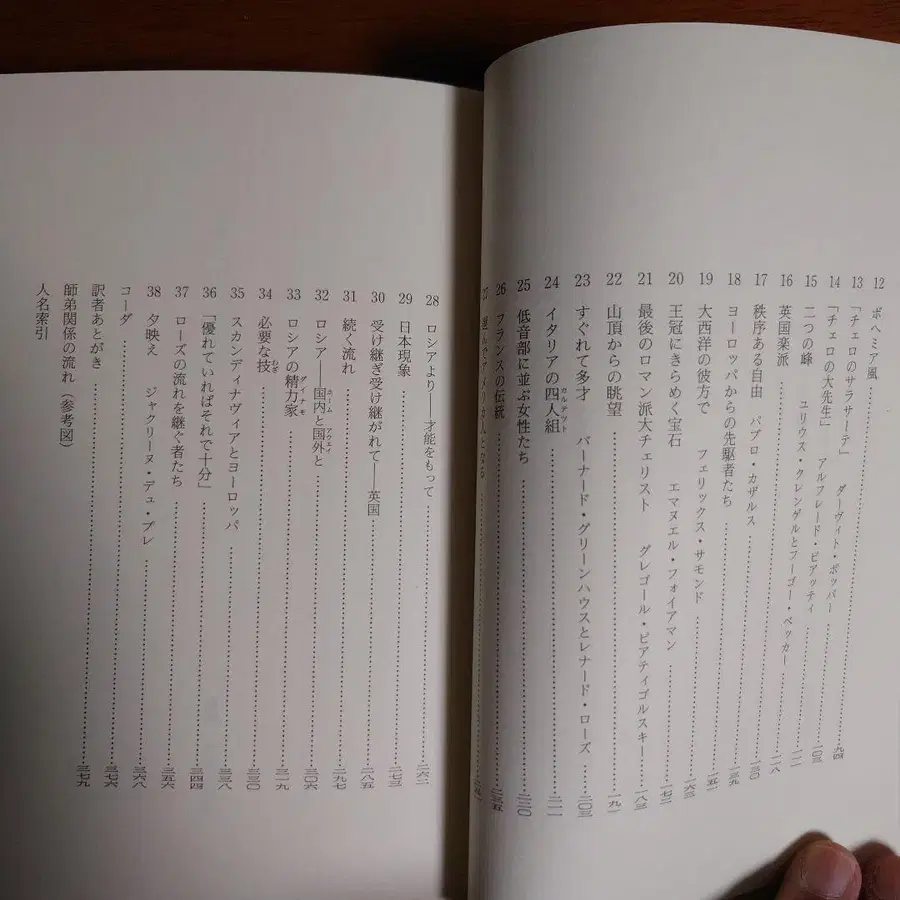 12 ボヘミア風
13 「チェロのサラサーテ」 ダーヴィト・ポッパー 九四
14 「チェロの大先生」 アルフレード・ピアッティ 一〇三
15 二つの峰 ユリウス・クレンゲルとフーゴー・ベッカー 一一一
16 英国楽派 一一八
17 秩序ある自由 パブロ・カザルス 一三〇
18 ヨーロッパからの先駆者たち 一三九
19 大西洋の彼方で フェリックス・サモンド 一五一
20 王冠にきらめく宝石 エマヌエル・フォイアマン 一六三
21 最後のロマン派大チェリスト グレゴール・ピアティゴルスキー 一七二
22 山頂からの眺望 一八三
23 すぐれて多才 バーナード・グリーンハウスとレナード・ローズ 一九一
24 イタリアの四人組 カルテット 二〇三
25 低音部に並ぶ女性たち 二一一
26 フランスの伝統 二二〇
二三五
28 ロシアより——才能をもって 二六二
29 日本現象 二七三
30 受け継ぎ受け継がれて——英国 二八五
31 続く流れ 二九七
32 ロシア——国内と国外と ホーム アウェイ 三〇六
33 ロシアの精力家 ダイナモ 三一九
34 必要な技 わざ 三三〇
35 スカンディナヴィアとヨーロッパ 三三八
36 「優れていればそれで十分」 三四四
37 ローズの流れを継ぐ者たち 三五六
38 夕映え ジャクリーヌ・デュ・プレ 三六八
コーダ 三七六
訳者あとがき 三七九
師弟関係の流れ（参考図）
人名索引